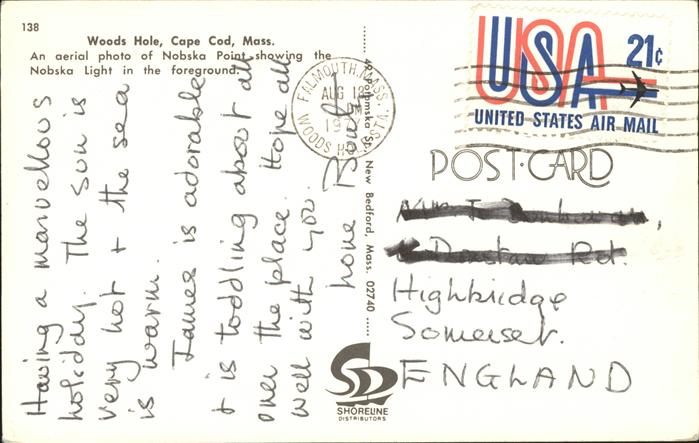 138
Woods Hole, Cape Cod, Mass.
An aerial photo of Nobska Point showing the
Nobska Light in the foreground.
Having a marvellous
holiday. The sun is
very hot + the sea
is warm.
James is adorable
+ is toddling about all
over the place. Hope all
well with you.
love
FALMOUTH, MASS.
AUG 12
PM
WOODS HOLE
St., New Bedford, Mass. 02740
SHORELINE
DISTRIBUTORS
USA
21¢
UNITED STATES AIR MAIL
POST·CARD
Rd.
Highbridge
Somerset.
ENGLAND